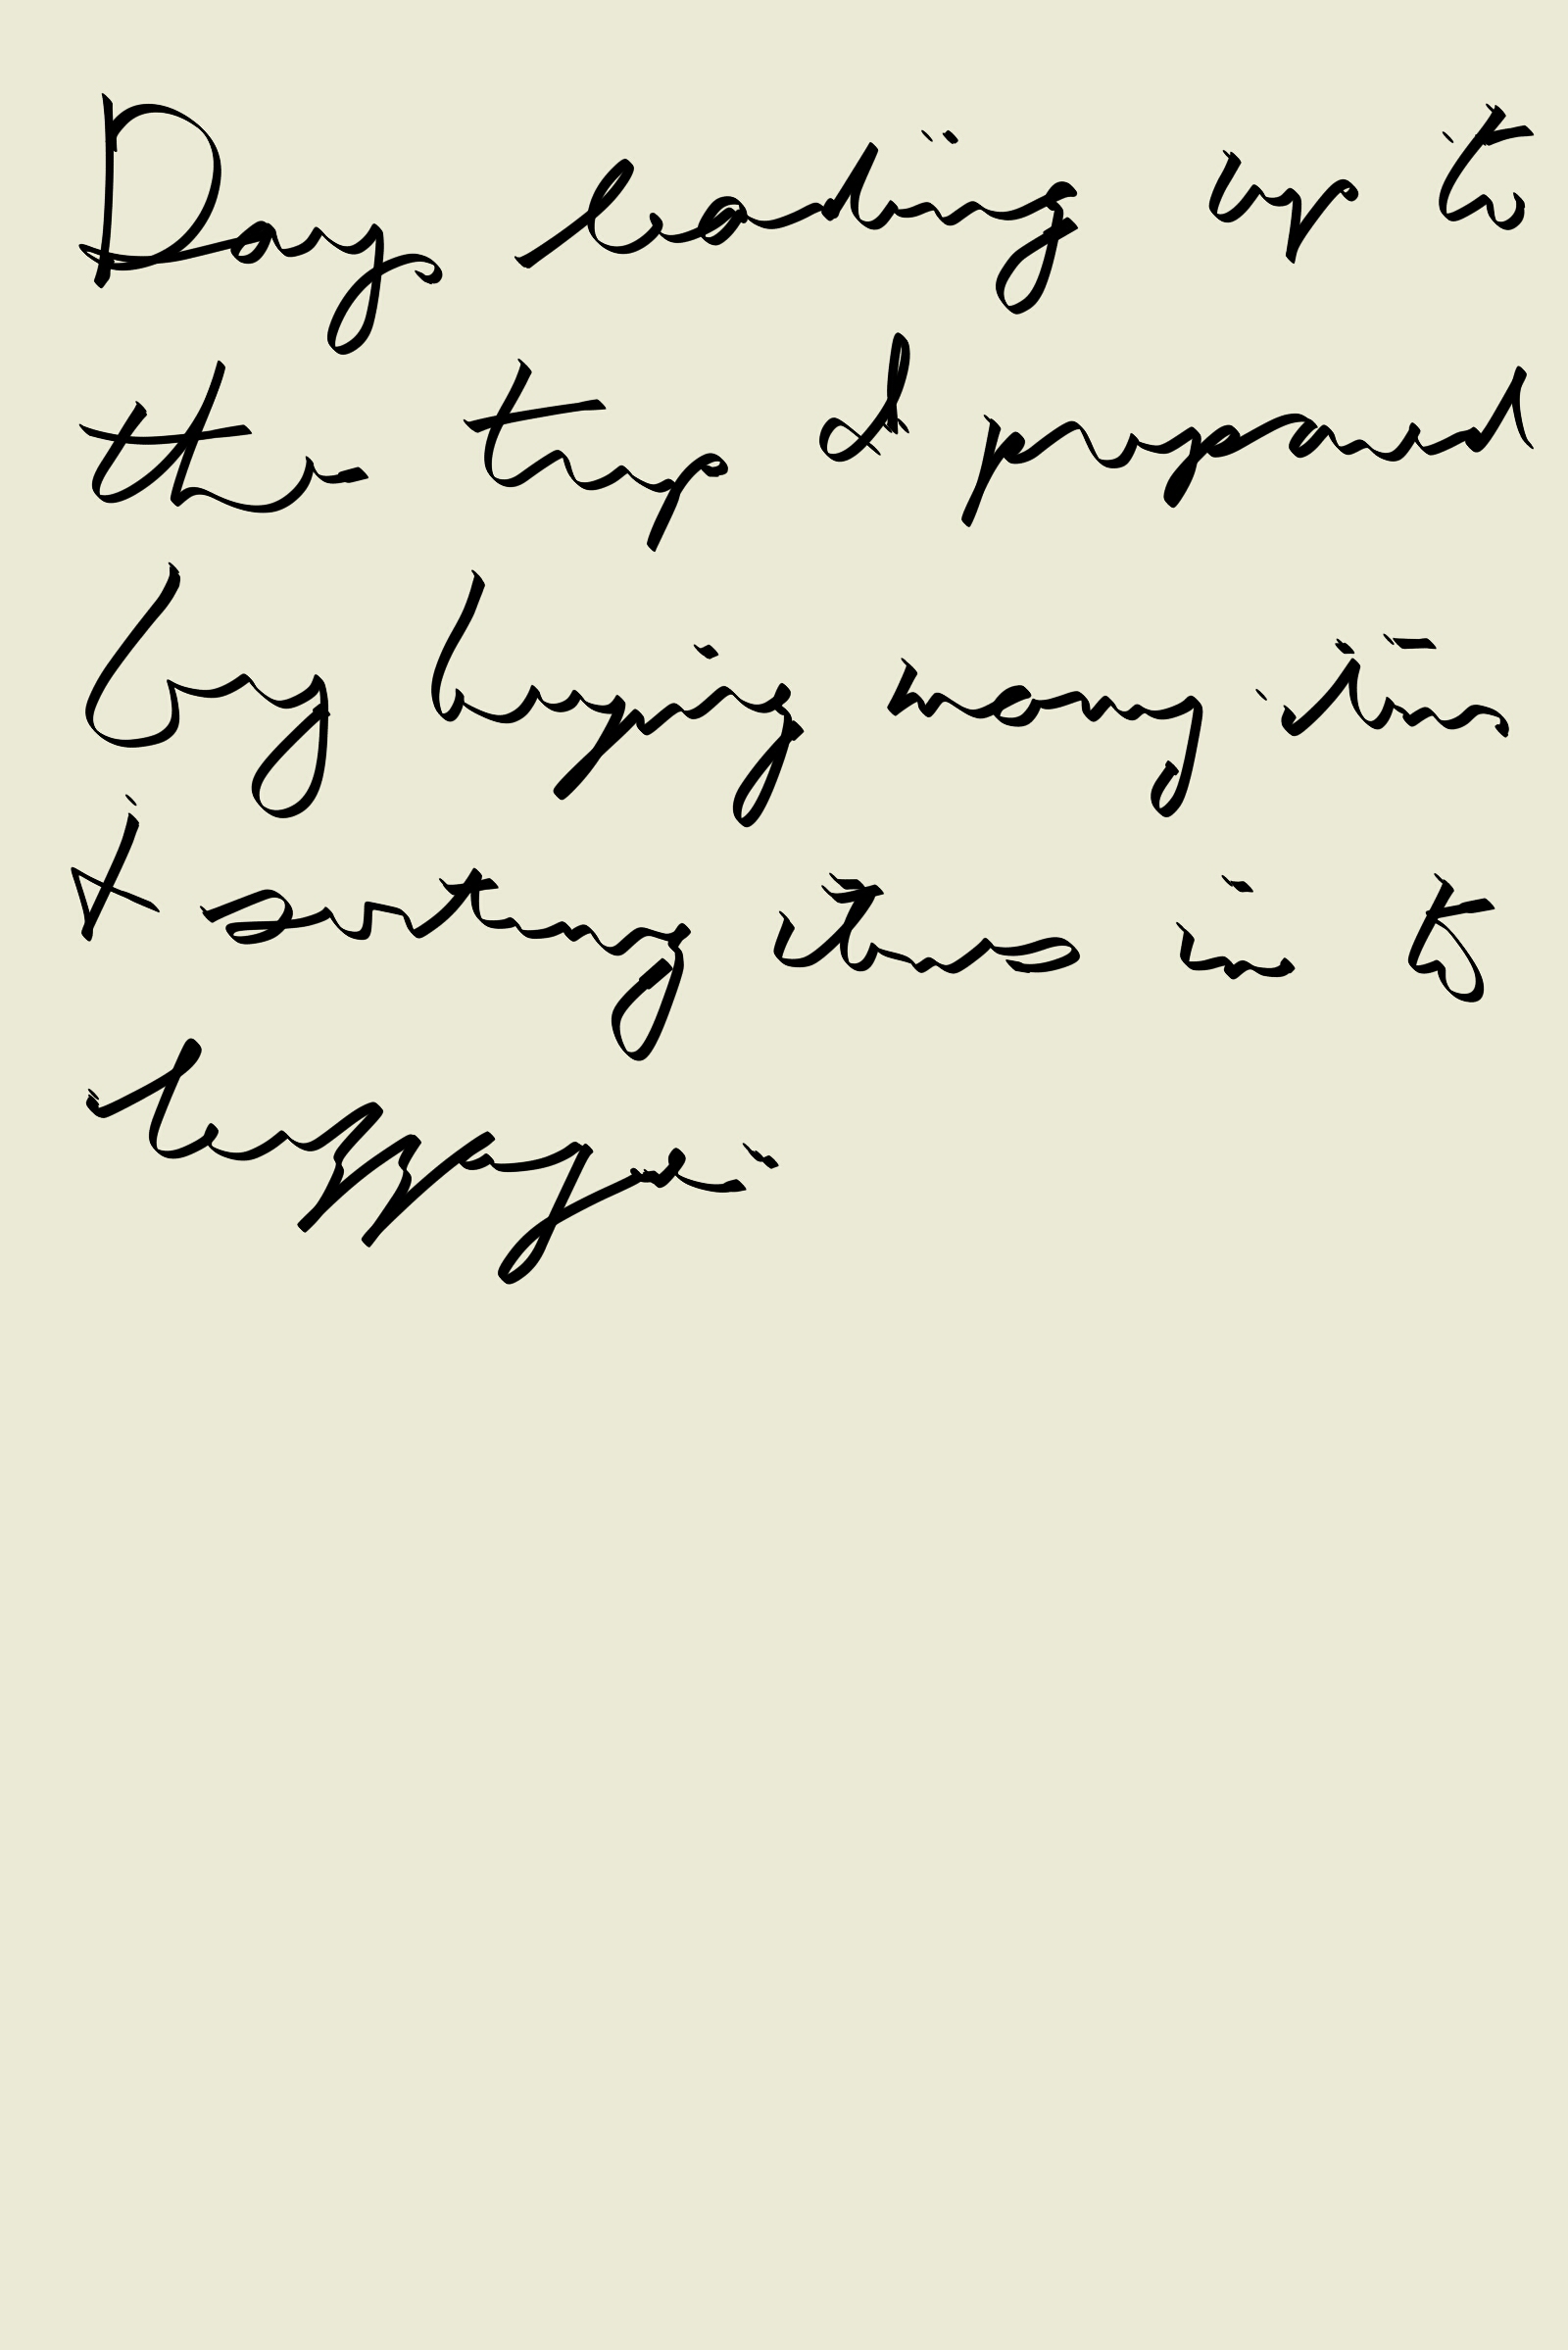 Days leading up to
the trip I prepared
by buying many items
& sorting them in to
luggage.